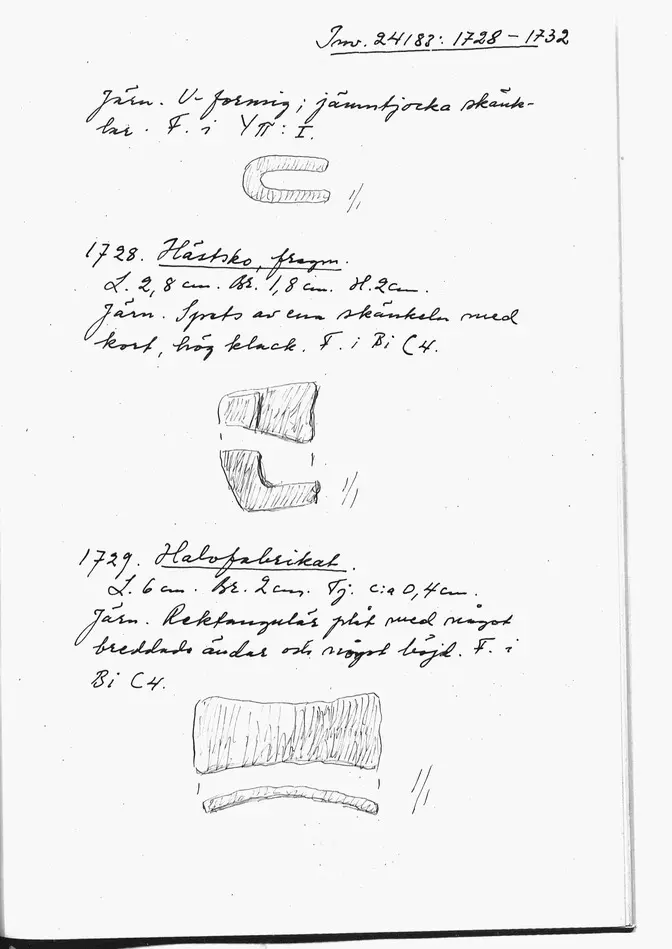 Inv. 24183: 1728 - 1732
Järn. U-formig; jämntjocka skänk-
lar. F. i YΠ: I.
1/1
1728. Hästsko, fragm.
L. 2,8 cm. Br. 1,8 cm. H. 2 cm.
Järn. Spets av ena skänkeln med
kort, hög klack. F. i Bi C4.
1/1
1729. Halvfabrikat.
L. 6 cm. Br. 2 cm. Tj. c:a 0,4 cm.
Järn. Rektangulär plåt med något
breddade ändar och något böjd. F. i
Bi C4.
1/1